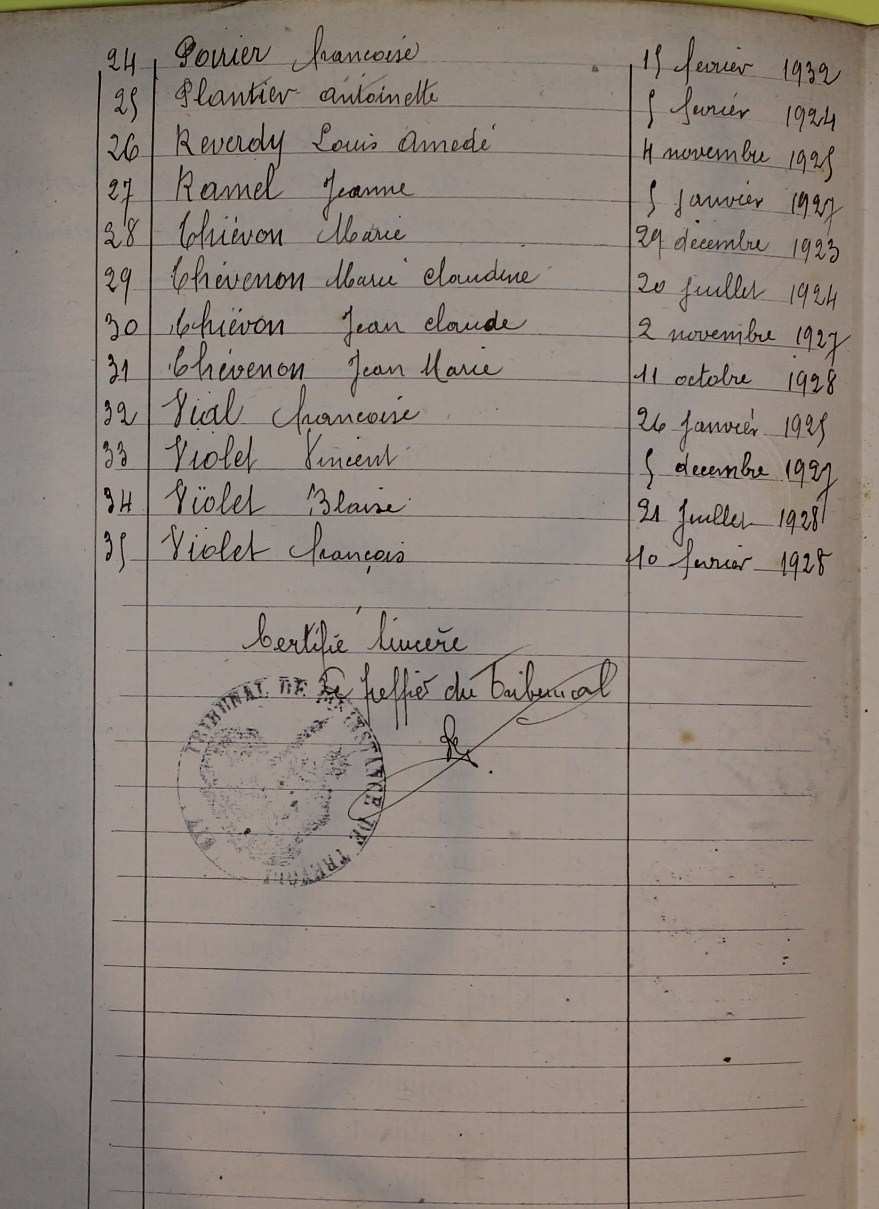 24 Poirier françoise 15 fevrier 1932
25 Plantier antoinette 5 fevrier 1924
26 Reverdy Louis Amedé 4 novembre 1925
27 Ramel Jeanne 5 Janvier 1927
28 Thiévon Marie 29 décembre 1923
29 Thévenon Marie Claudine 20 Juillet 1924
30 Thiévon Jean claude 2 novembre 1927
31 Thévenon Jean Marie 11 octobre 1928
32 Vial francoise 26 Janvier 1925
33 Violet Vincent 5 decembre 1927
34 Violet Blaise 21 Juillet 1928
35 Violet françois 10 fevrier 1928
Certifié Sincère
Le Greffier du Tribunal
TRIBUNAL DE INSTANCE DE TREVOUX